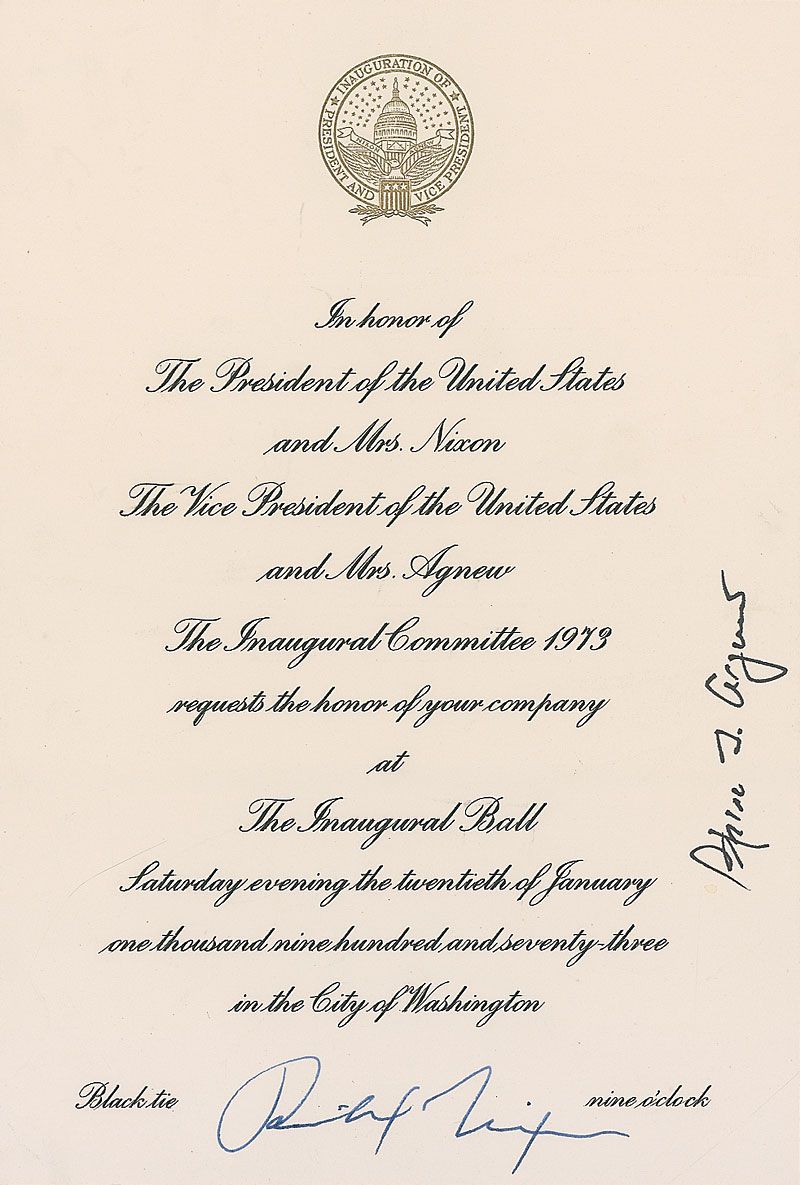 ★ INAUGURATION OF ★
PRESIDENT AND VICE PRESIDENT
NIXON AGNEW
In honor of
The President of the United States
and Mrs. Nixon
The Vice President of the United States
and Mrs. Agnew
The Inaugural Committee 1973
requests the honor of your company
at
The Inaugural Ball
Saturday evening the twentieth of January
one thousand nine hundred and seventy-three
in the City of Washington
Black tie
nine o'clock
Richard Nixon
Spiro T. Agnew